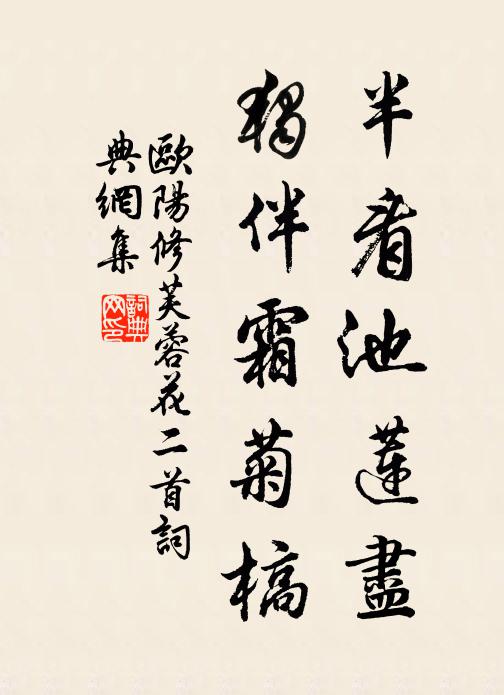 半看池蓮盡
獨伴霜菊槁
歐陽修芙蓉花二首詞
典網集
詞典网印